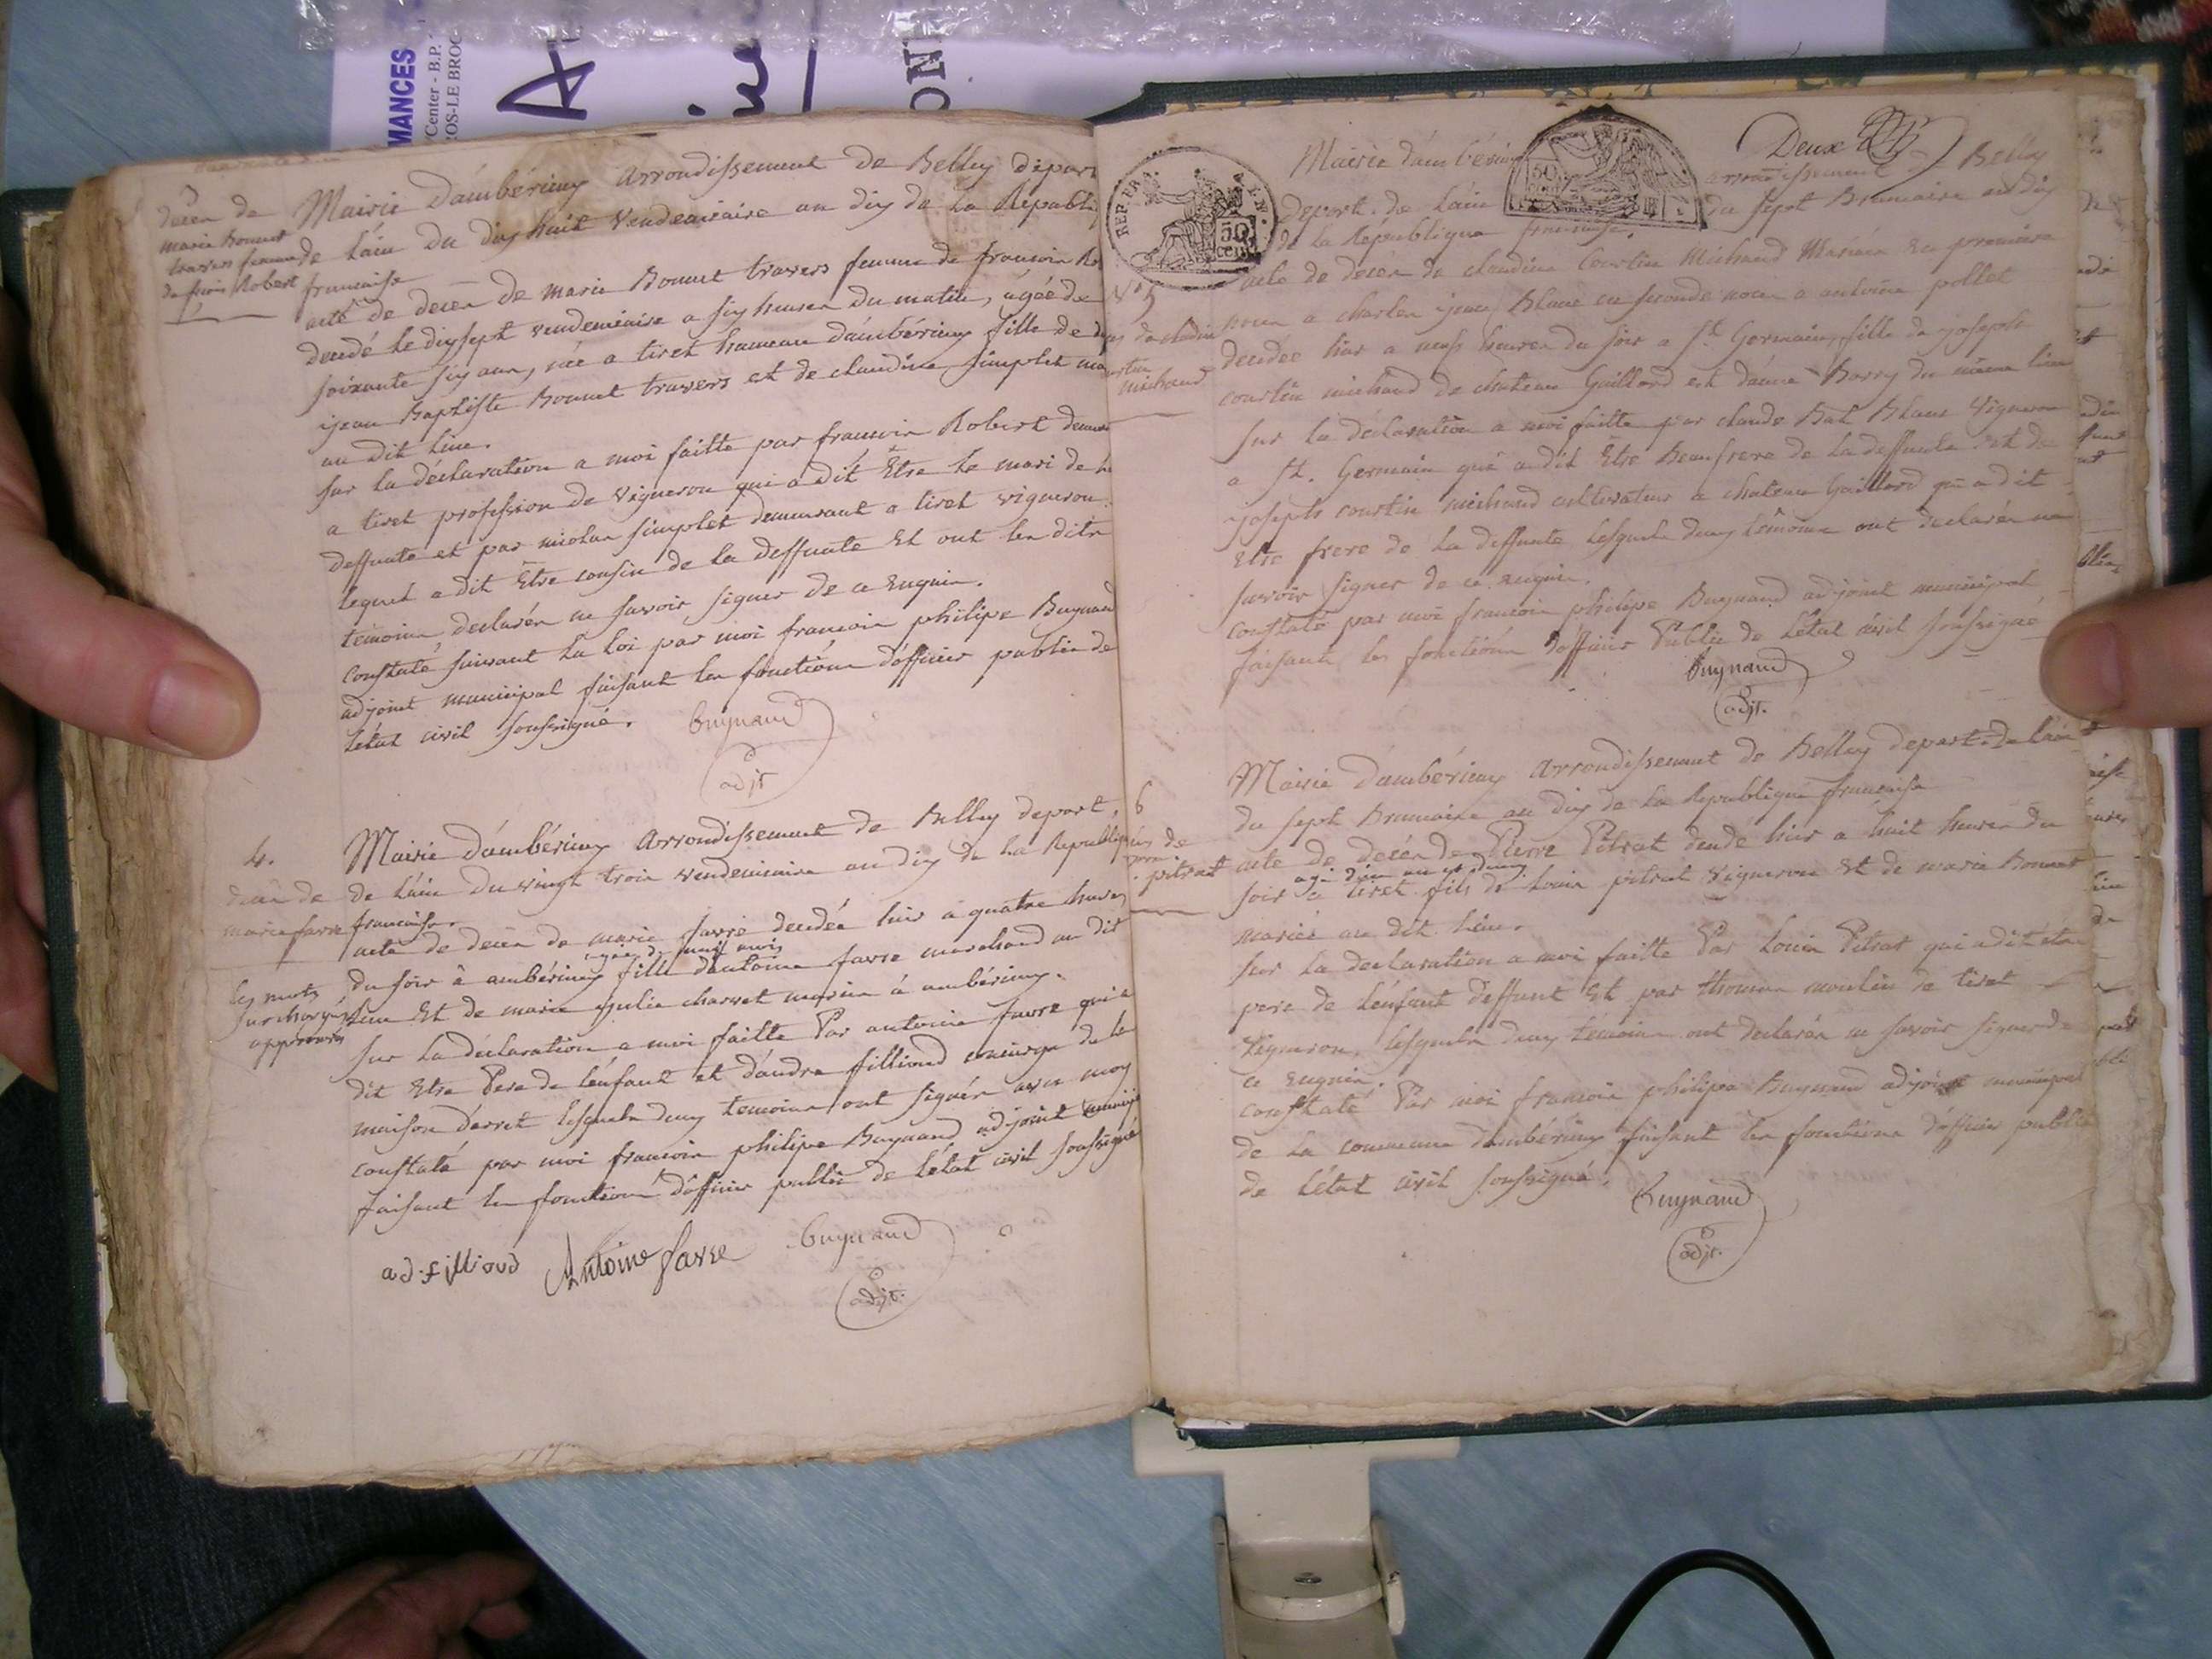 MANCES
Center - B.P.
ROS-LE BROC
A
ON
3
décès de
marie Bonnet
travers femme
de frois Robert
Mairie d'ambérieux arrondissement de Belley depart
de l'ain du dix huit Vendemiaire an dix de la Republiq
francaise
acte de décès de marie Bonnet travers femme de francois Ro
decedé le dixsept vendemiaire a six heures du matin, agée de
soixante six ans, née a tiret hameau d'ambérieux fille de
jean Baptiste Bonnet travers et de claudine simplet ma
au dit lieu.
sur la déclaration a moi faitte par francois Robert demeu
a tiret profession de vigneron qui a dit Être le mari de la
deffunte et par nicolas simplet demeurant a tiret vigneron
lequel a dit Être cousin de la deffunte et ont les dits
temoins declarés ne savoir signer de ce enquis.
constaté suivant la loi par moi francois philipe Buynand
adjoint municipal faisant les fonctions d'officier public de
létat civil soussigné. Buynand
adjt
4.
décès de
marie favre
les mots
surchargés
approuvés
Mairie d'ambérieux arrondissement de Belley depart.
de l'ain du vingt trois vendemiaire an dix de la Republiq
francaise.
acte de décès de marie favre decedée hier a quatre heures
agée de neuf mois
du soir à ambérieux fille d'antoine favre marchand au dit
lieu Et de marie julie charvet mariés à ambérieux.
sur la déclaration a moi faitte Par antoine favre qui a
dit Etre Pere de l'enfant et d'andre fillioud concierge de la
maison d'arret lesquels deux temoins ont signés avec moy
constaté par moi francois philipe Buynand adjoint municip
faisant les fonctions d'officier public de létat civil soussigné
ad. fillioud Antoine favre Buynand
adjt.
REP. FRA.
50
cen
50
Deux
Mairie d'ambérieux arrondissement de Belley
depart. de l'ain du sept Brumaire an dix
de la Republique francaise.
N° 5
décès de claudine
courtin
michaud
acte de décès de claudine Courtin Michaud Mariée en premiere
noces a charles jean Blanc en seconde noces a antoine pollet
decedée hier a neuf heures du soir a St. Germain, fille de joseph
courtin michaud de chateau Gaillard et d'anne Borry du même lieu
sur la déclaration a moi faitte par claude Bat Blanc Vigneron
a St. Germain qui a dit Être Beaufrere de la deffunte et de
joseph courtin michaud cultivateur a chateau Gaillard qui a dit
Etre frere de la deffunte lesquels deux témoins ont declarés ne
savoir signer de ce enquis.
constaté par moi francois philipe Buynand adjoint municipal
faisant les fonctions d'officier Public de létat civil soussigné
Buynand
adjt.
6
décès de
pitrat
Mairie d'ambérieux arrondissement de Belley depart. de l'ain
du sept Brumaire an dix de la Republique francaise
acte de décès de Pierre Pitrat decedé hier a huit heures du
agé d'un an et demy
soir a tiret fils de Louis pitrat vigneron et de marie Bonnet
mariés au dit lieu.
sur la declaration a moi faitte Par Louis Pitrat qui a dit être
pere de l'enfant deffunt Et par thomas moulin de tiret
Vigneron, lesquels deux témoins ont declarés ne savoir signer de
ce enquis.
constaté Par moi francois philipe Buynand adjoint municipal
de la commune d'ambérieux faisant les fonctions d'officier public
de létat civil soussigné. Buynand
adjt.